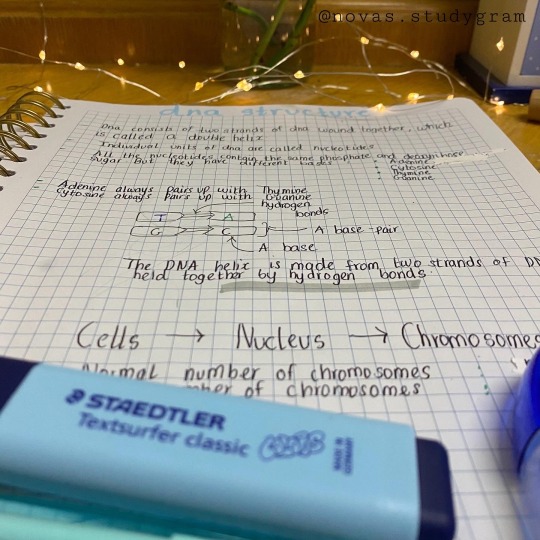 @novas.studygram
dna structure
Dna consists of two strands of dna wound together, which
is called a double helix
Individual units of dna are called nucleotides
All the nucleotides contain the same phosphate and deoxyribose
sugar but they have different bases
Adenine
Cytosine
Thymine
Guanine
Adenine always pairs up with Thymine
Cytosine always pairs up with Guanine
hydrogen
bonds
T A
G C
A base-pair
A base
The DNA helix is made from two strands of
held together by hydrogen bonds.
Cells → Nucleus → Chromosomes
Normal number of chromosomes
of chromosomes
STAEDTLER
Textsurfer classic
MADE IN
GERMANY